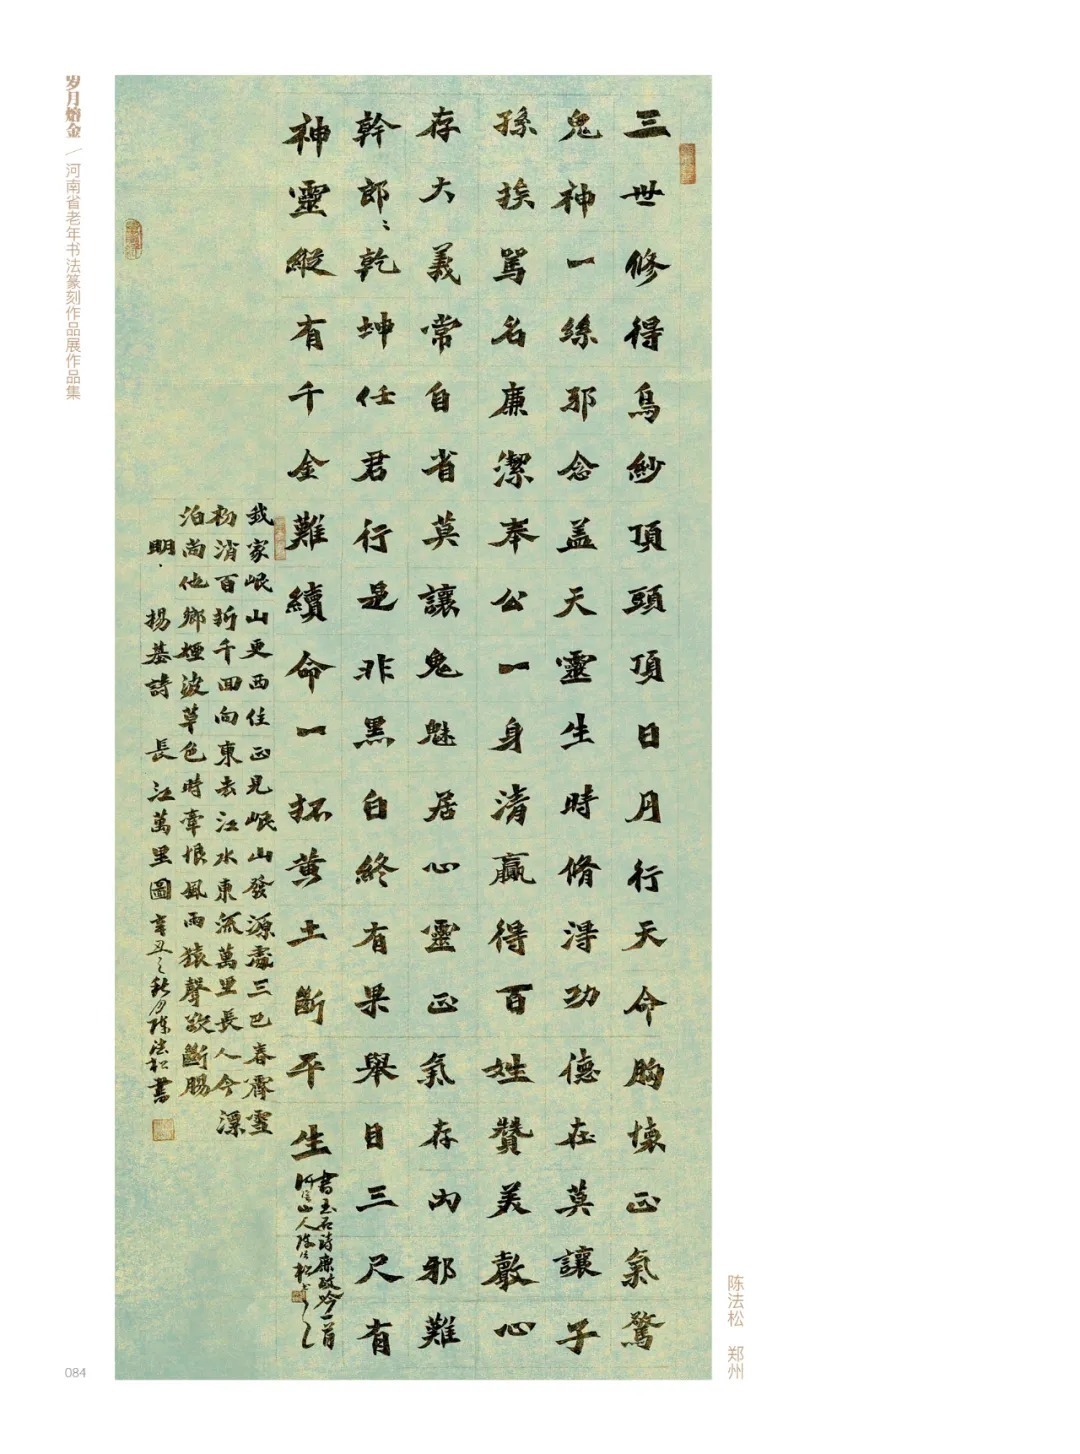 岁月熔金／河南省老年书法篆刻作品展作品集
三世修得烏紗頂頭頂日月行天命胸懐正氣驚
鬼神一絲邪念盖天靈生時脩得功德在莫讓子
孫挨罵名廉潔奉公一身清贏得百姓贊美聲心
存大義常自省莫讓鬼魅居心靈正氣存内邪難
幹郎郎乾坤任君行是非黑白終有果舉目三尺有
神靈縱有千金難續命一抔黄土斷平生
書玉石詩廉政吟一首
山人陈法松
我家岷山更西住正見岷山發源處三巴春霽雪
初消百折千回向東去江水東流萬里長人今漂
泊尚他鄉煙波草色時牽恨風雨猿聲欲斷腸
明．楊基詩 長江萬里圖 辛丑之秋月陳法松書
陈法松 郑州
084